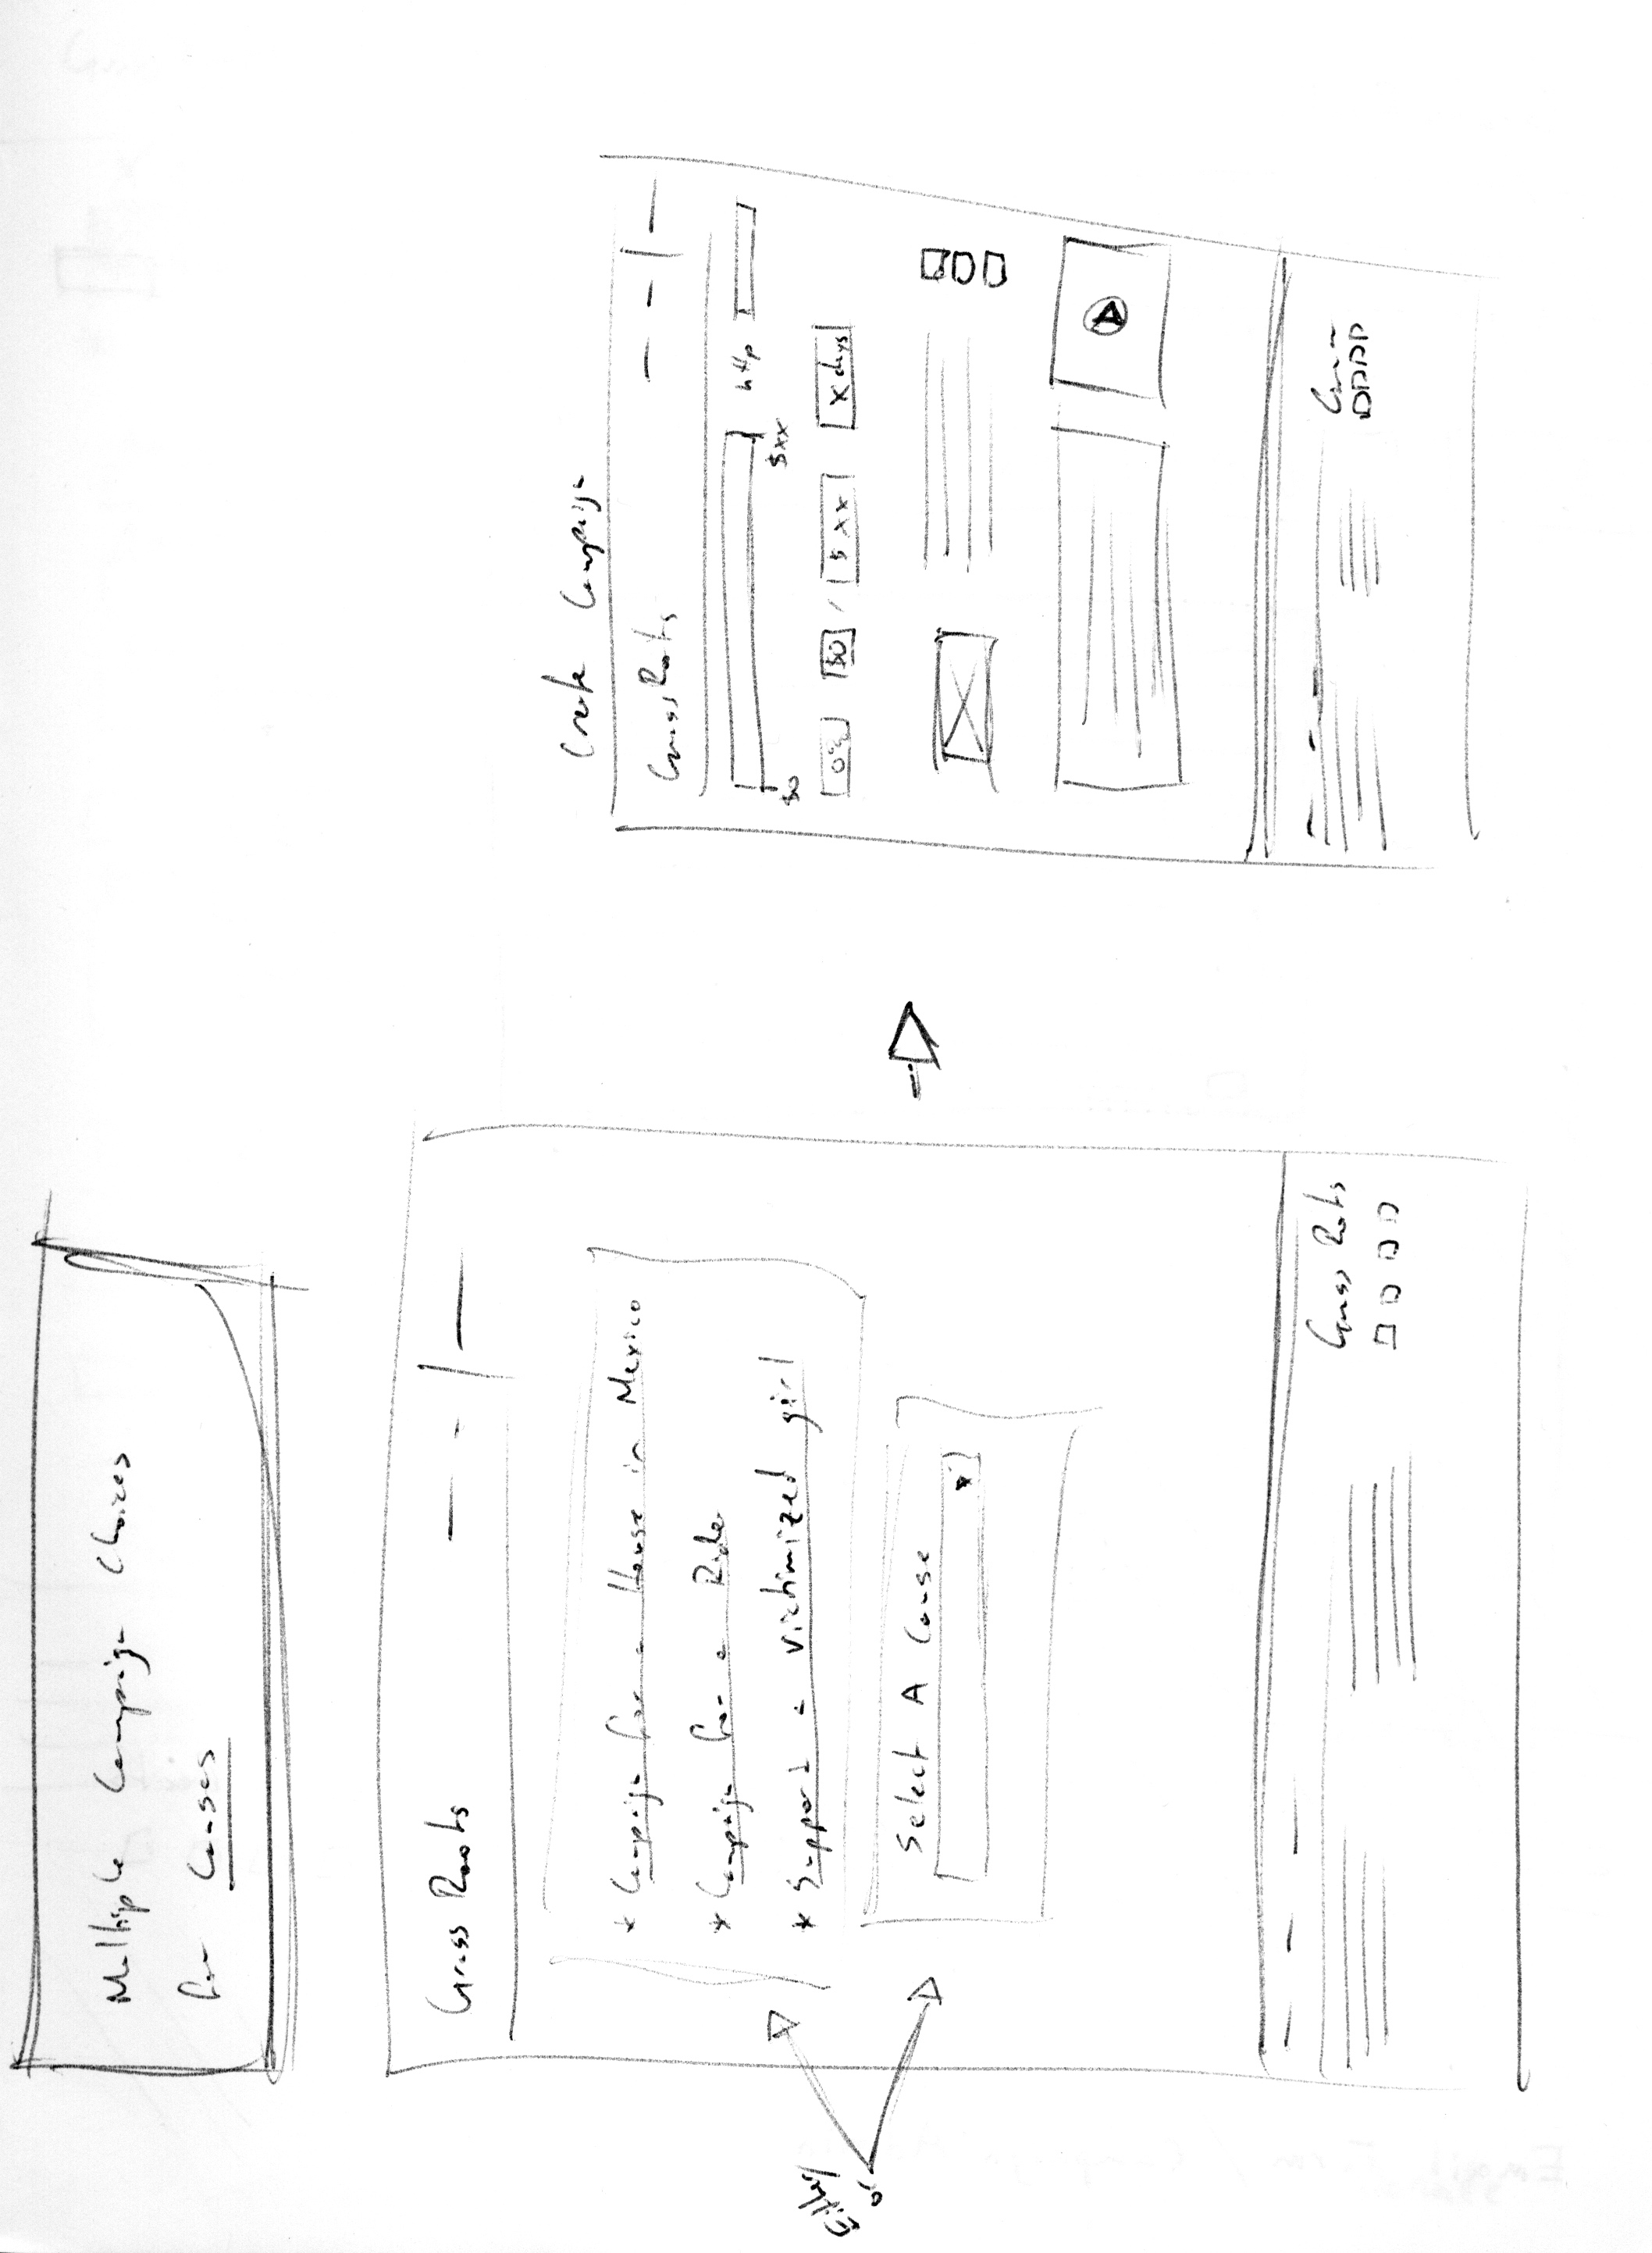 Multiple Campaign Choices
for Causes
Grass Roots
* Campaign for a House in Mexico
* Campaign for a Ride
* Support a victimized girl
Select A Cause
Either/
or
Grass Roots
Create Campaign
Grass Roots
http
$0
$xx
0%
$0
/
$xx
x days
A